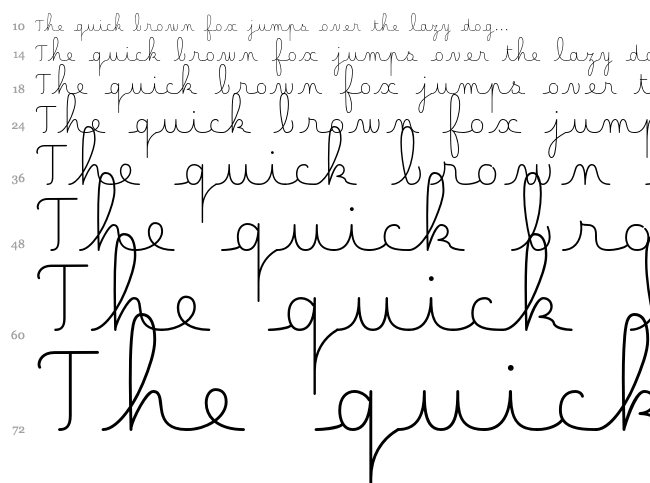 10 The quick brown fox jumps over the lazy dog...
14 The quick brown fox jumps over the lazy do
18 The quick brown fox jumps over t
24 The quick brown fox jump
36 The quick brown
48 The quick bro
60 The quick
72 The quick